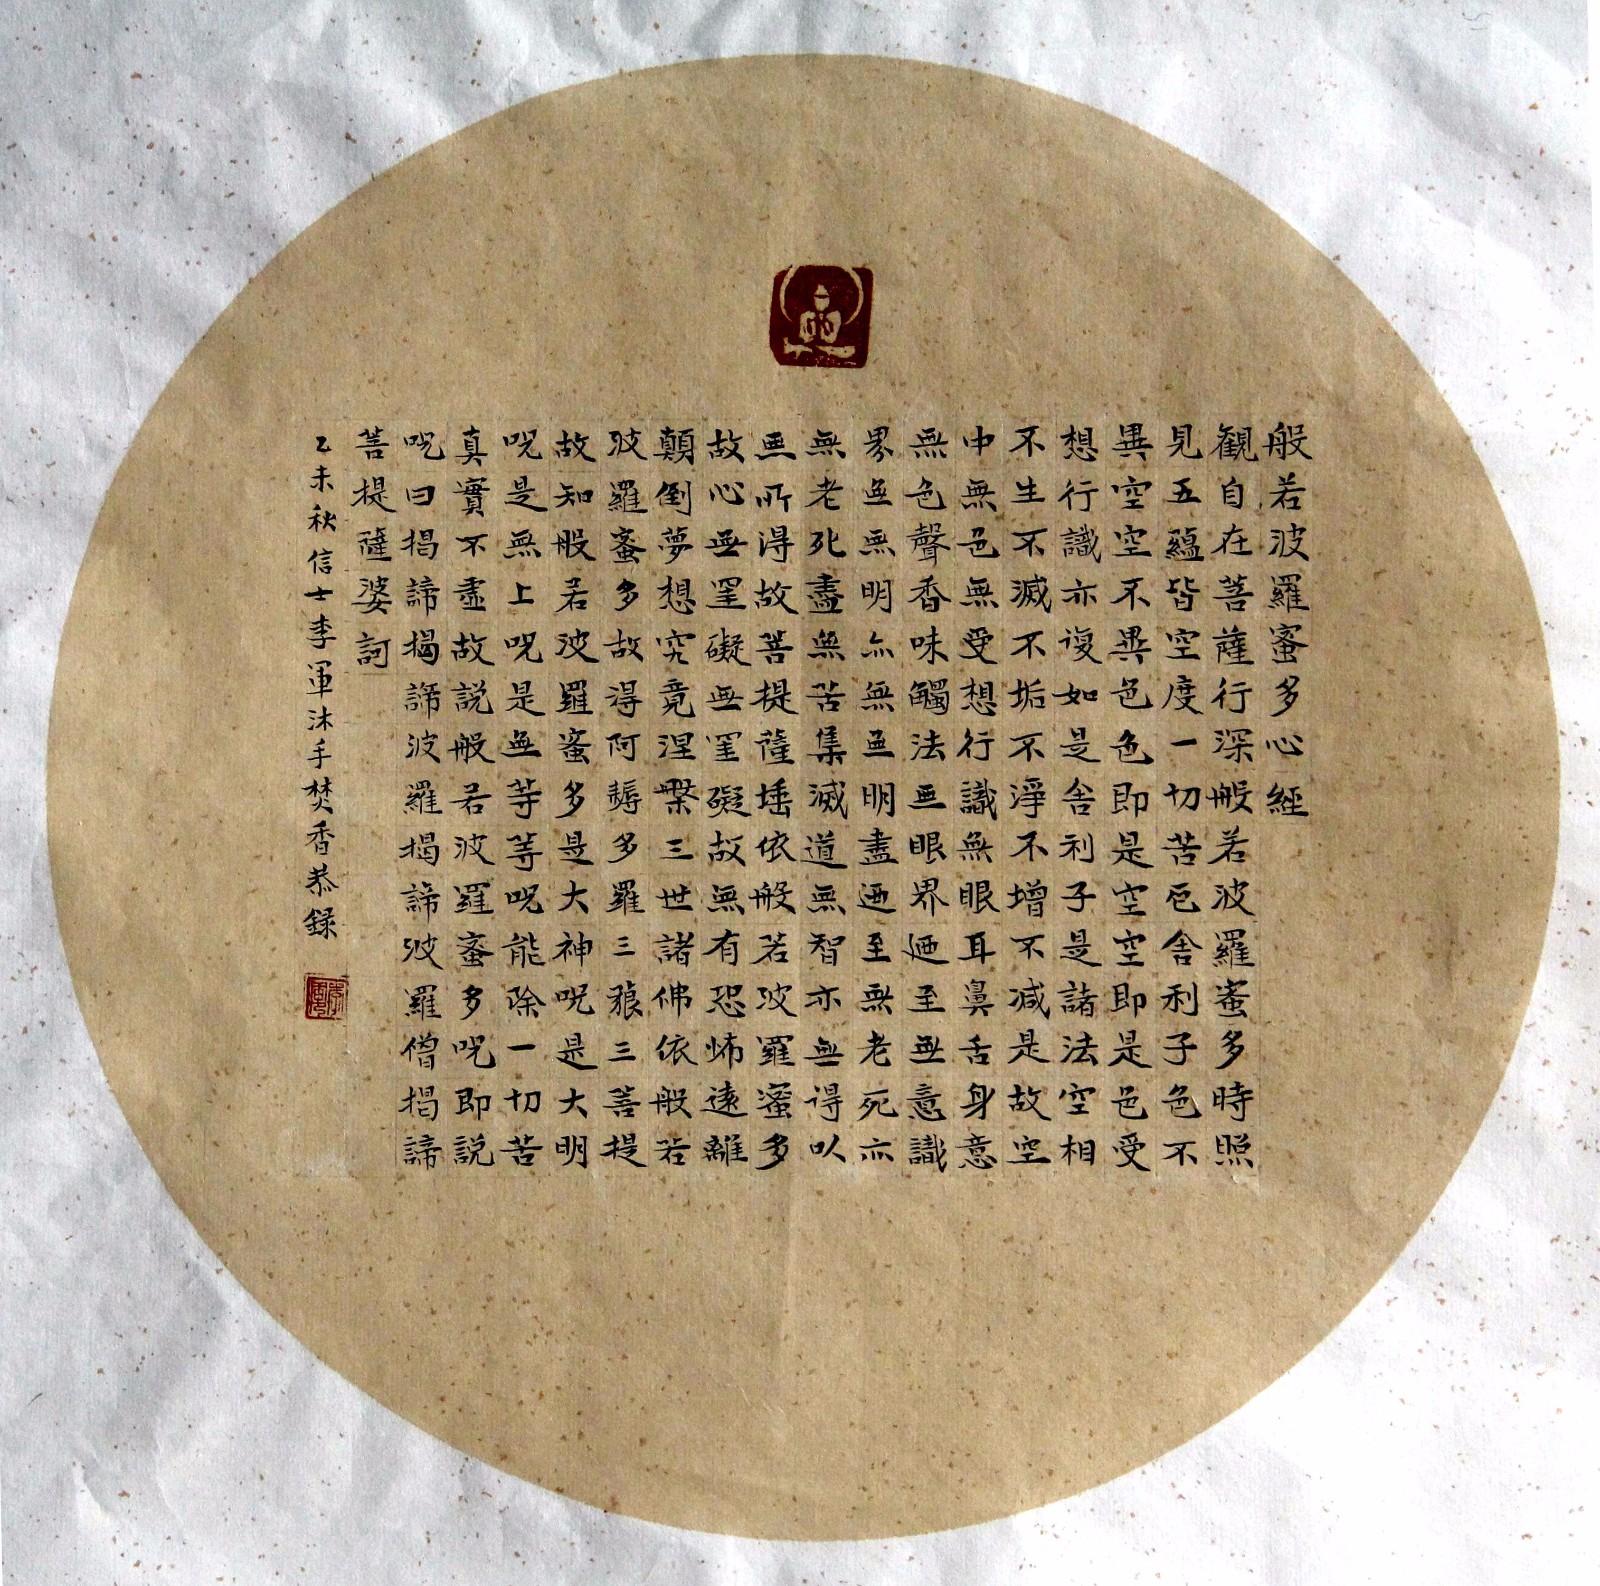 般若波羅蜜多心經
觀自在菩薩行深般若波羅蜜多時照
見五蘊皆空度一切苦厄舍利子色不
異空空不異色色即是空空即是色受
想行識亦復如是舍利子是諸法空相
不生不滅不垢不淨不增不減是故空
中無色無受想行識無眼耳鼻舌身意
無色聲香味觸法無眼界迺至無意識
界無無明亦無無明盡迺至無老死亦
無老死盡無苦集滅道無智亦無得以
無所得故菩提薩埵依般若波羅蜜多
故心無罣礙無罣礙故無有恐怖遠離
顛倒夢想究竟涅槃三世諸佛依般若
波羅蜜多故得阿耨多羅三藐三菩提
故知般若波羅蜜多是大神咒是大明
咒是無上咒是無等等咒能除一切苦
真實不虛故說般若波羅蜜多咒即說
咒曰揭諦揭諦波羅揭諦波羅僧揭諦
菩提薩婆訶
乙未秋信士李軍沐手焚香恭錄